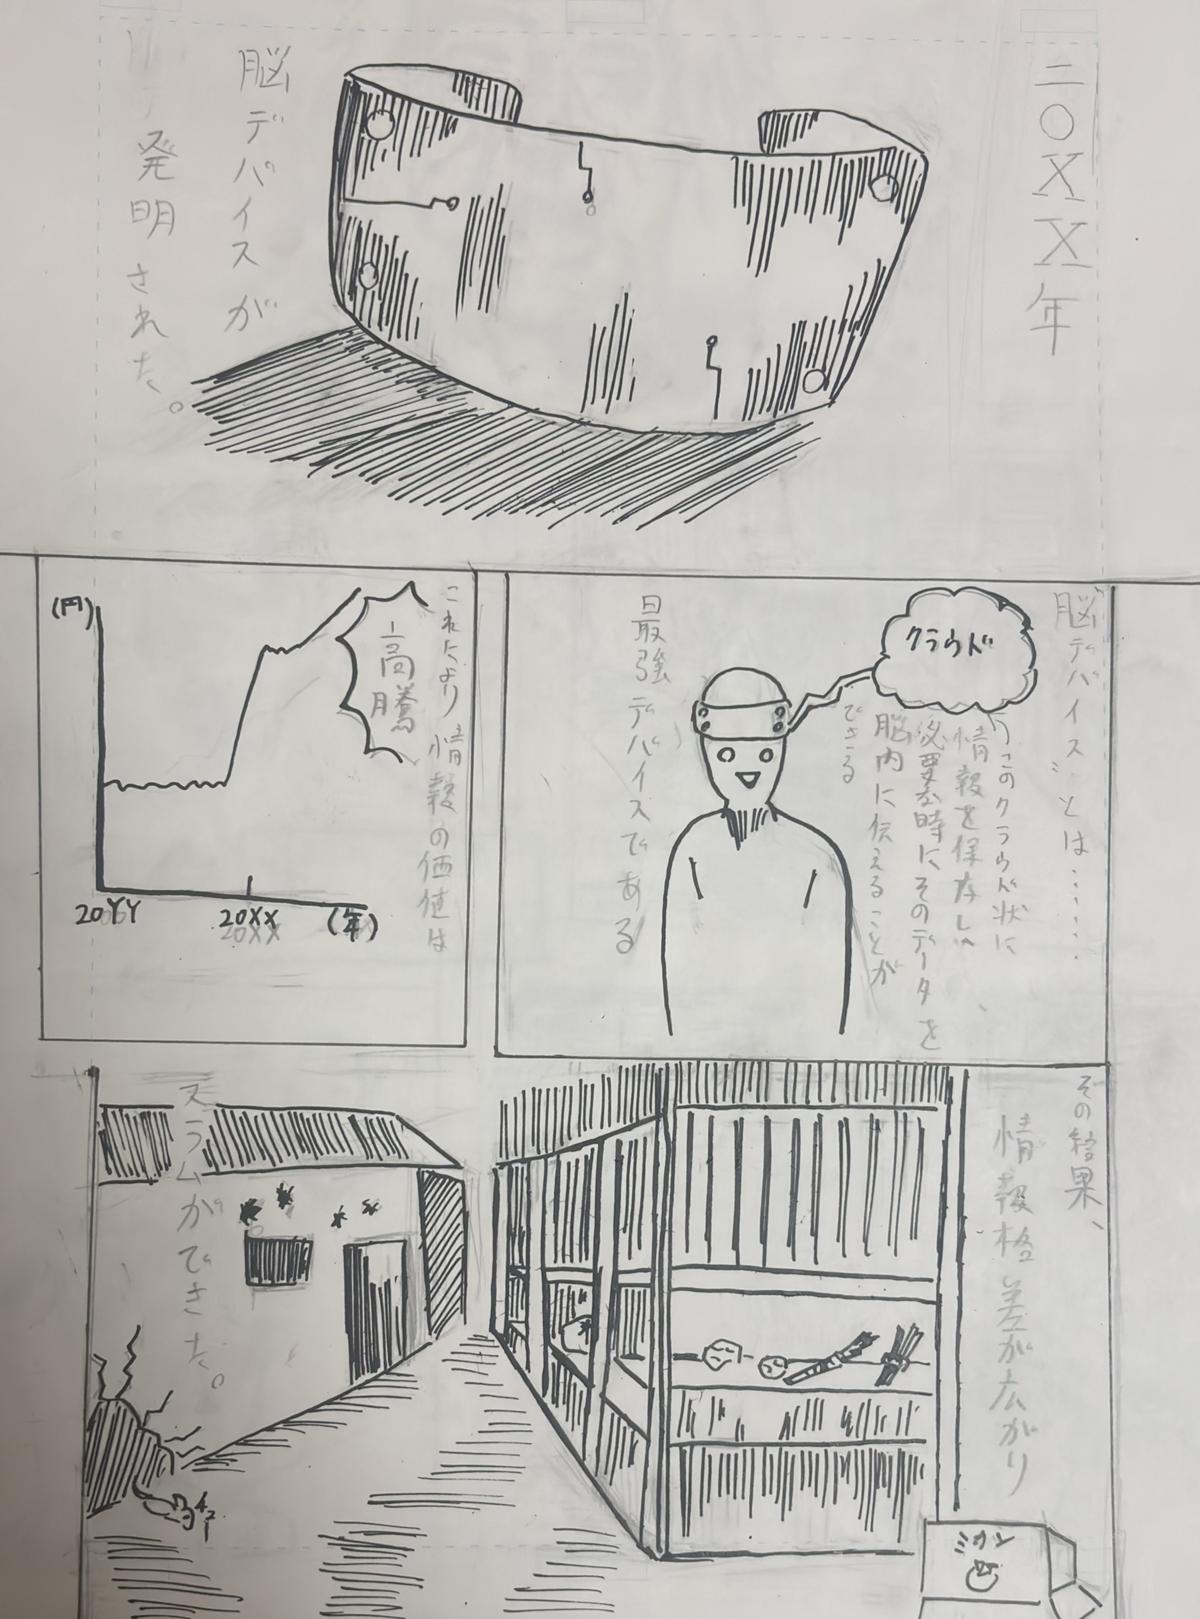 二〇XX年
脳デバイスが
発明された。
脳デバイスとは……
クラウド
このクラウド状に
情報を保存し、
必要時にそのデータを
脳内に伝えることが
できる
最強デバイスである
これにより情報の価値は
高騰
(円)
20YY
20XX
20XX
(年)
その結果、
情報格差が広がり
スラムができた。
ミカン